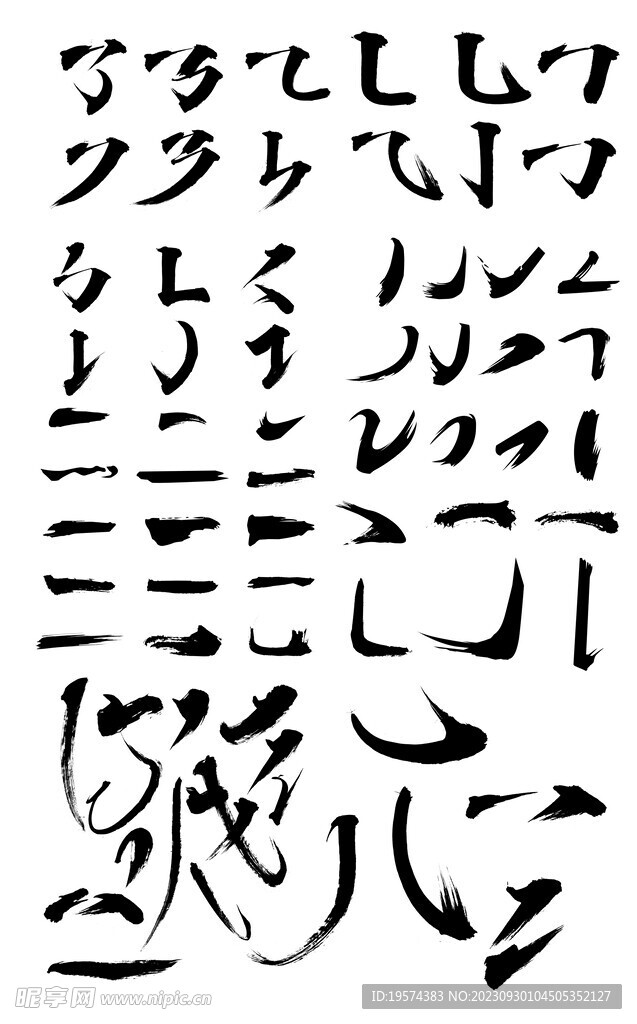 昵享网 www.nipic.cn
ID:19574383 NO:20230930104505352127